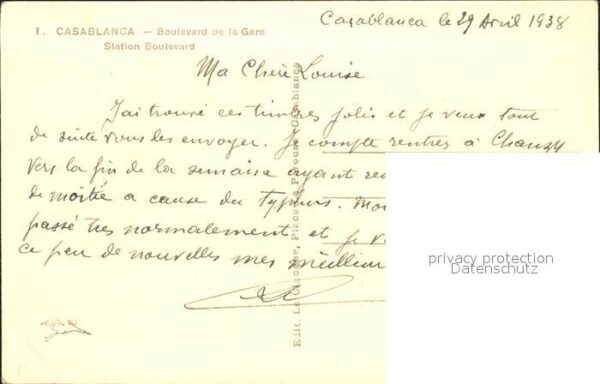 Casablanca le 29 Avril 1938
1. CASABLANCA — Boulevard de la Gare
Station Boulevard
Ma Chère Louise
J'ai trouvé ces timbres jolis et je veux tout
de suite vous les envoyer. Je compte rentrer à Chanzy
vers la fin de la semaine ayant
de moitié a cause du Typhus.
passé très normalement et je
ce peu de nouvelles mes meilleur
Edit. La Cigogne, Place de France, Casablanca
privacy protection
Datenschutz